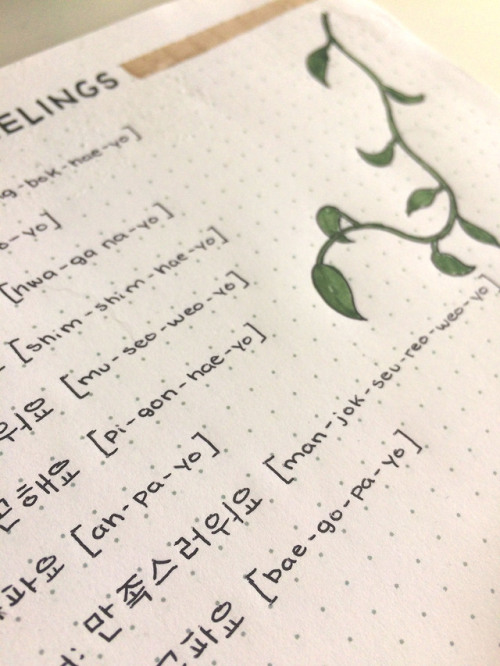 EELINGS
g-bok-hae-yo]
o-yo]
[hwa-ga na-yo]
[shim-shim-hae-yo]
워요 [mu-seo-weo-yo]
곤해요 [pi-gon-hae-yo]
파요 [ah-pa-yo]
: 만족스러워요 [man-jok-seu-reo-weo-yo]
고파요 [bae-go-pa-yo]